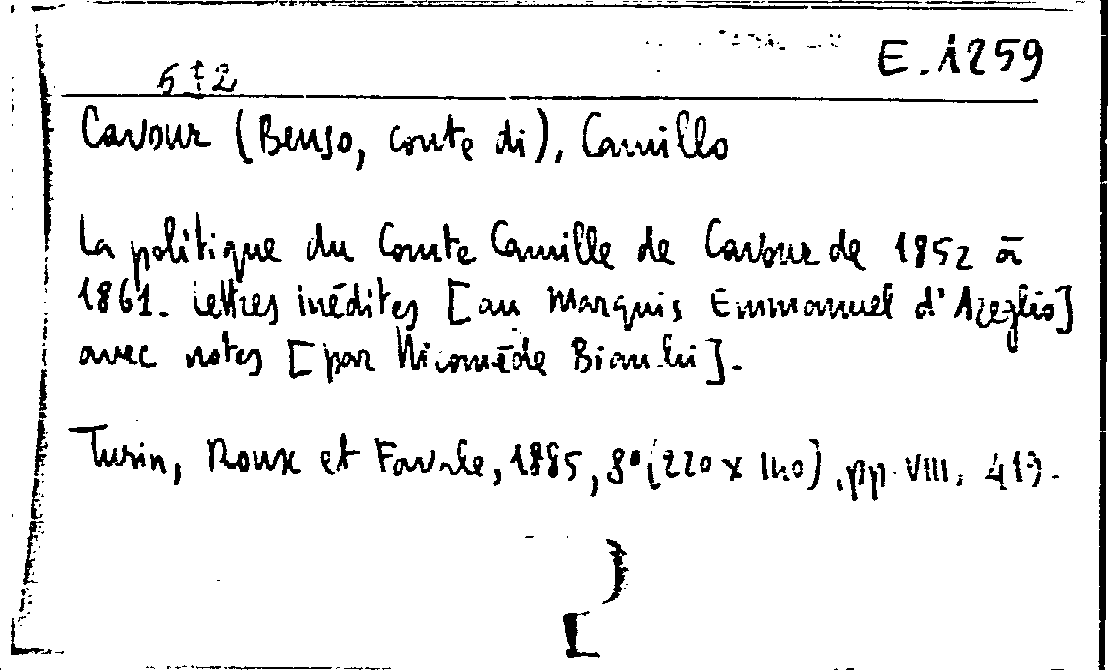 E.1259
Cavour (Benso, conte di), Camillo
La politique du Comte Camille de Cavour de 1852 à
1861. Lettres inédites [au Marquis Emmanuel d'Azeglio]
avec notes [par Nicomède Bianchi].
Turin, Roux et Favale, 1885, 8º (220 x 140), pp. VIII,